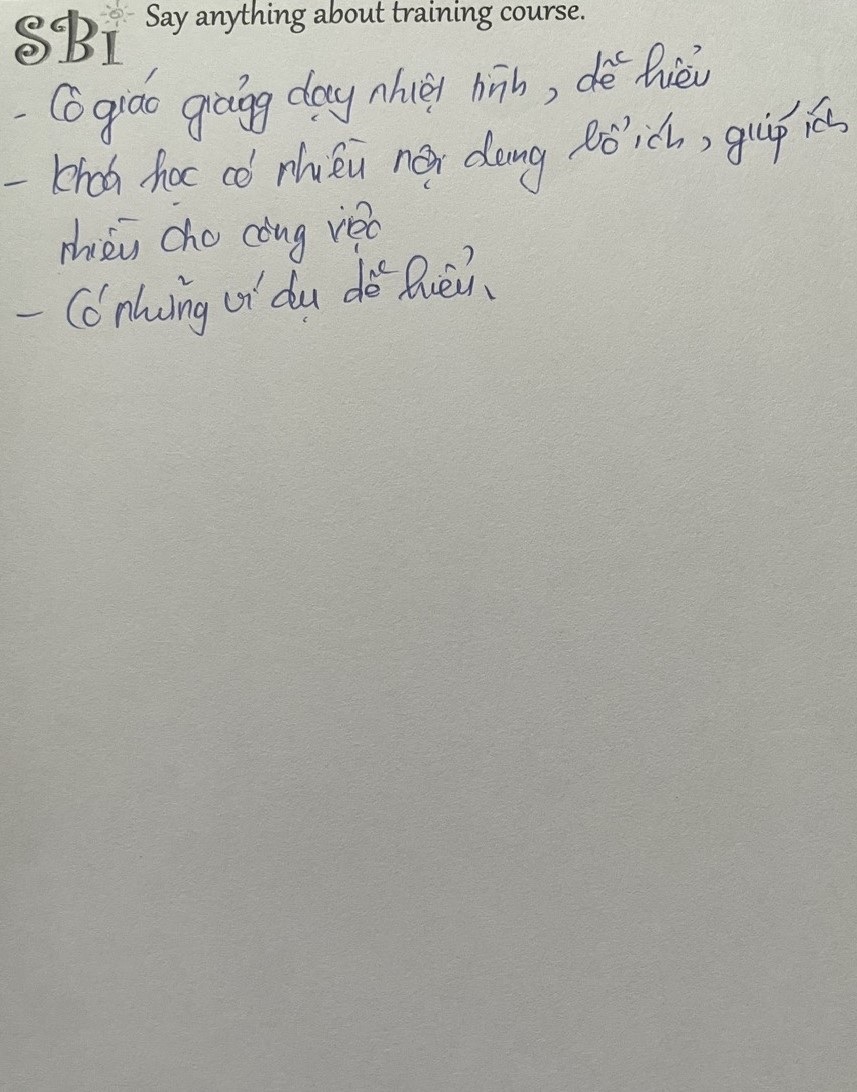 SBI Say anything about training course.
- Cô giáo giảng dạy nhiệt tình, dễ hiểu
- Khoá học có nhiều nội dung bổ ích, giúp ích
nhiều cho công việc
- Có những ví dụ dễ hiểu.